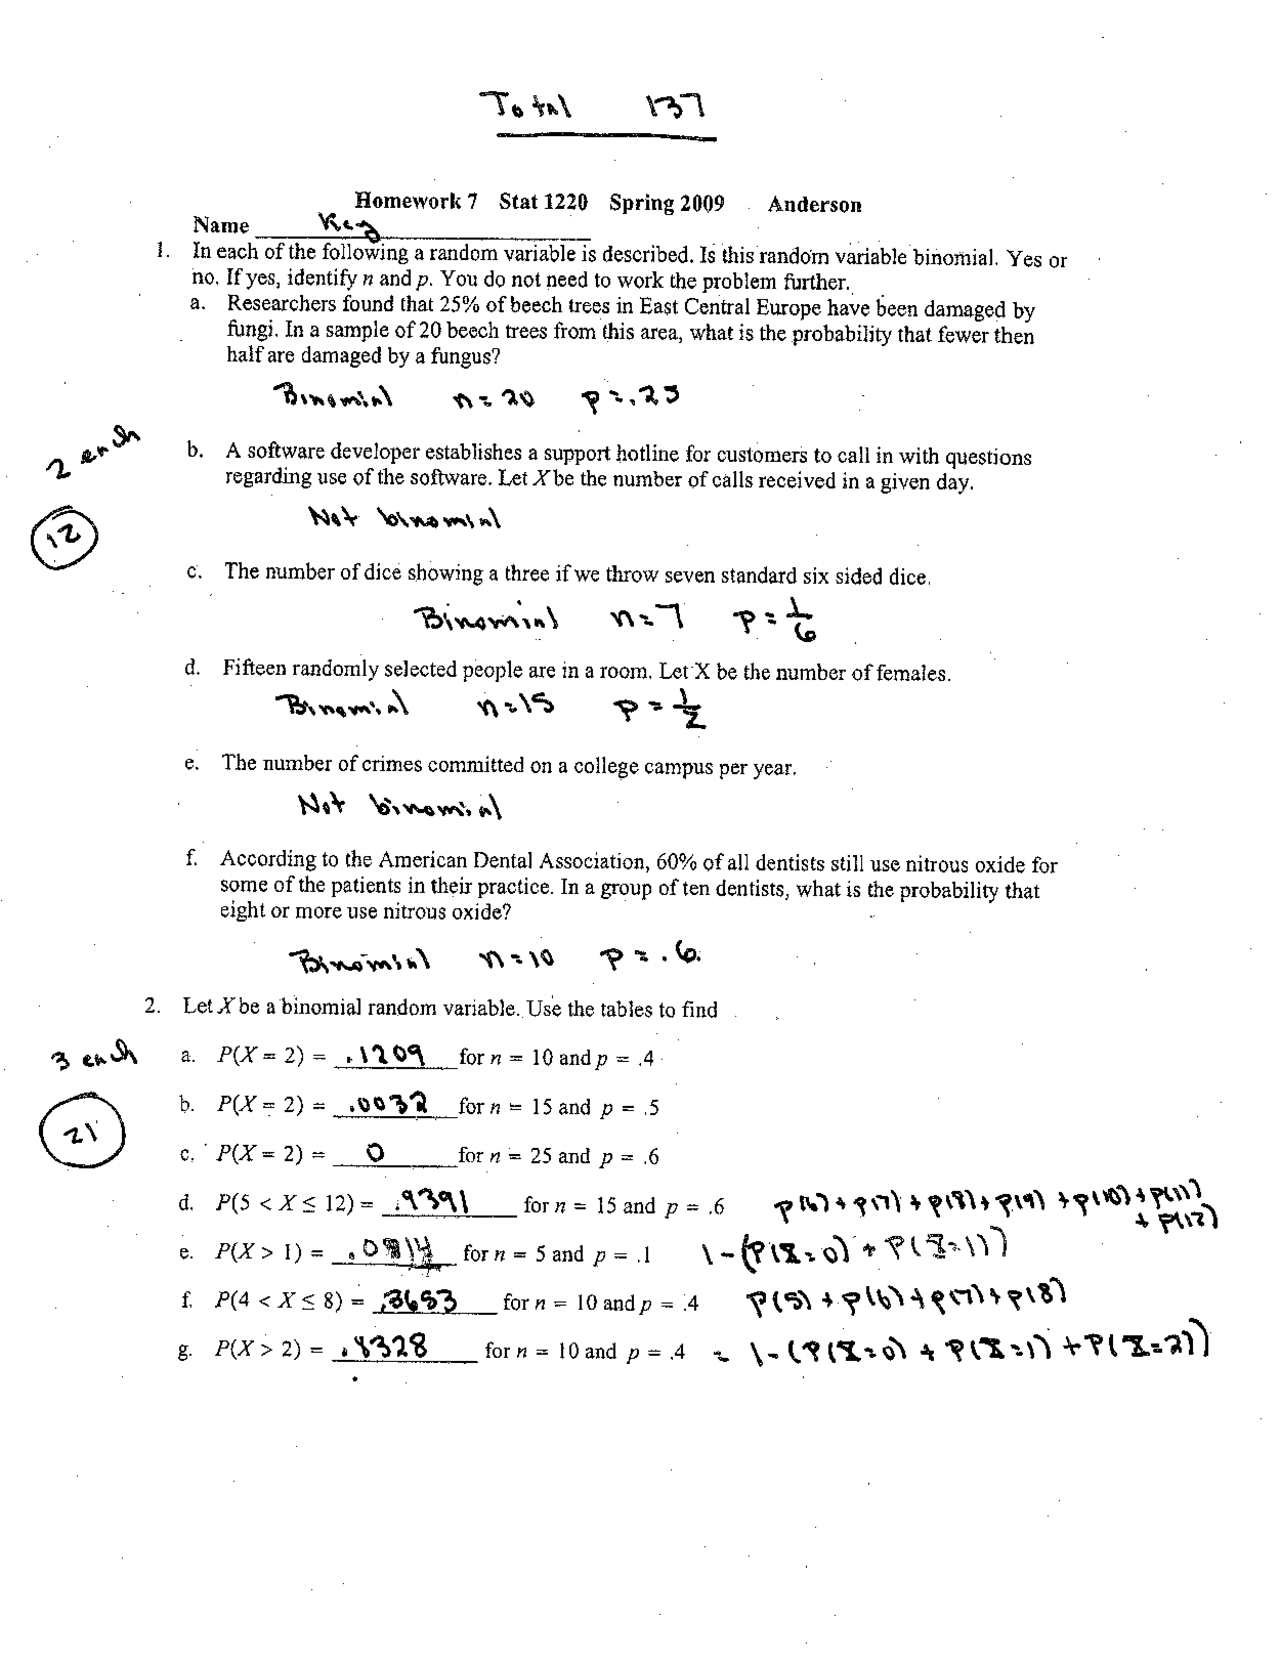 Total 137
Homework 7 Stat 1220 Spring 2009 Anderson
Name Key
1. In each of the following a random variable is described. Is this random variable binomial. Yes or
no. If yes, identify n and p. You do not need to work the problem further.
a. Researchers found that 25% of beech trees in East Central Europe have been damaged by
fungi. In a sample of 20 beech trees from this area, what is the probability that fewer then
half are damaged by a fungus?
Binomial n = 20 p = .25
2 each
b. A software developer establishes a support hotline for customers to call in with questions
regarding use of the software. Let X be the number of calls received in a given day.
Not binomial
12
c. The number of dice showing a three if we throw seven standard six sided dice.
Binomial n = 7 p = 1/6
d. Fifteen randomly selected people are in a room. Let X be the number of females.
Binomial n = 15 p = 1/2
e. The number of crimes committed on a college campus per year.
Not binomial
f. According to the American Dental Association, 60% of all dentists still use nitrous oxide for
some of the patients in their practice. In a group of ten dentists, what is the probability that
eight or more use nitrous oxide?
Binomial n = 10 p = .6
2. Let X be a binomial random variable. Use the tables to find
3 each
a. P(X = 2) = .1209 for n = 10 and p = .4
b. P(X = 2) = .0032 for n = 15 and p = .5
21
c. P(X = 2) = 0 for n = 25 and p = .6
d. P(5 < X ≤ 12) = .9391 for n = 15 and p = .6 P(6) + P(7) + P(8) + P(9) + P(10) + P(11)
+ P(12)
e. P(X > 1) = .0814 for n = 5 and p = .1 1 - (P(X=0) + P(X=1))
f. P(4 < X ≤ 8) = .3653 for n = 10 and p = .4 P(5) + P(6) + P(7) + P(8)
g. P(X > 2) = .8328 for n = 10 and p = .4 = 1 - (P(X=0) + P(X=1) + P(X=2))